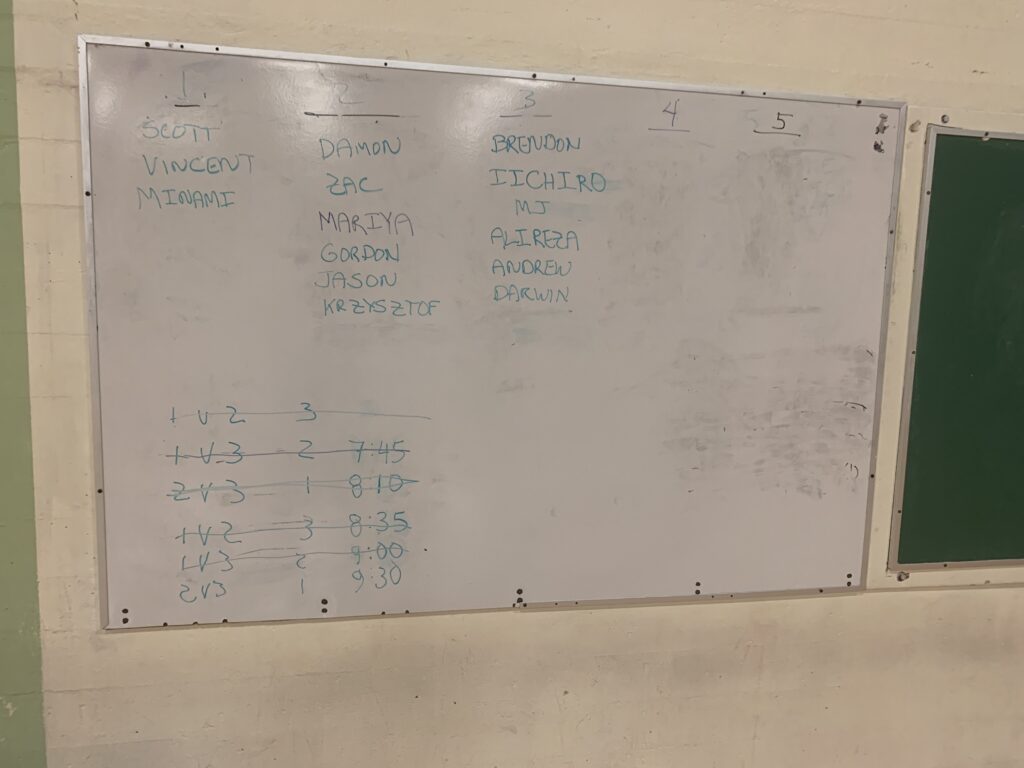 1 2 3 4 5
SCOTT
VINCENT
MINAMI
DAMON
ZAC
MARIYA
GORDON
JASON
KRZYSZTOF
BRENDON
IICHIRO
MJ
ALIREZA
ANDREW
DARWIN
1 V 2 3
1 V 3 2 7:45
2 V 3 1 8:10
1 V 2 3 8:35
1 V 3 2 9:00
2 V 3 1 9:30